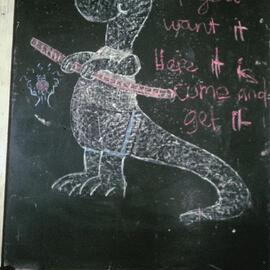 you
want it
Here it is
come and
get it